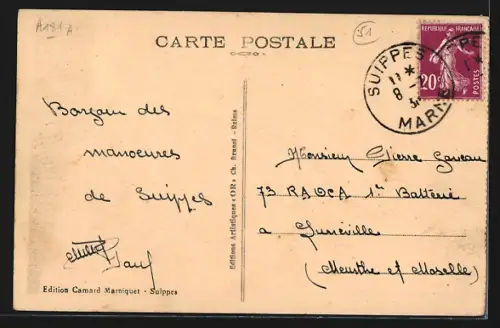 A191A
51
CARTE POSTALE
SUIPPES
11 *
8 -
MARNE
REPUBLIQUE FRANCAISE
20c
POSTES
Bonjour des
manoeuvres
de Suippes
Editions Artistiques «OR» Ch. Brunel - Reims
Monsieur Pierre
73 RADCA 1re Batterie
a Luneville
(Meurthe et Moselle)
Edition Camard Marniquet - Suippes